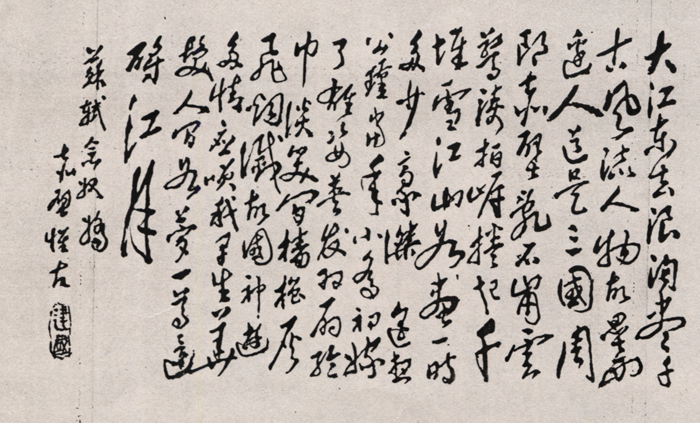 大江东去浪淘尽千
古风流人物故垒西
边人道是三國周
郎赤壁乱石崩雲
惊涛拍岸捲起千
堆雪江山如画一时
多少豪傑遥想
公瑾当年小乔初嫁
了雄姿英发羽扇纶
巾谈笑间樯橹灰
飞烟灭故國神遊
多情应笑我早生华
髮人间如梦一尊还
酹江月
苏轼念奴娇
赤壁怀古
建國